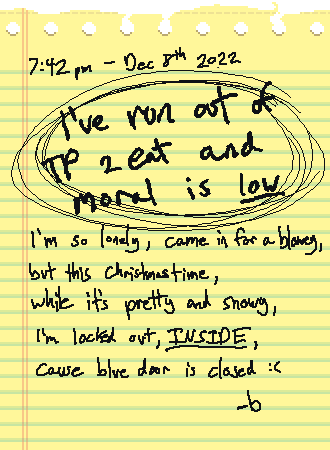 7:42 pm - Dec 8th 2022
I've run out of
TP 2 eat and
moral is low
I'm so lonely, came in for a blowey,
but this Christmastime,
while it's pretty and snowy,
I'm locked out, INSIDE,
cause blue door is closed :<
-b